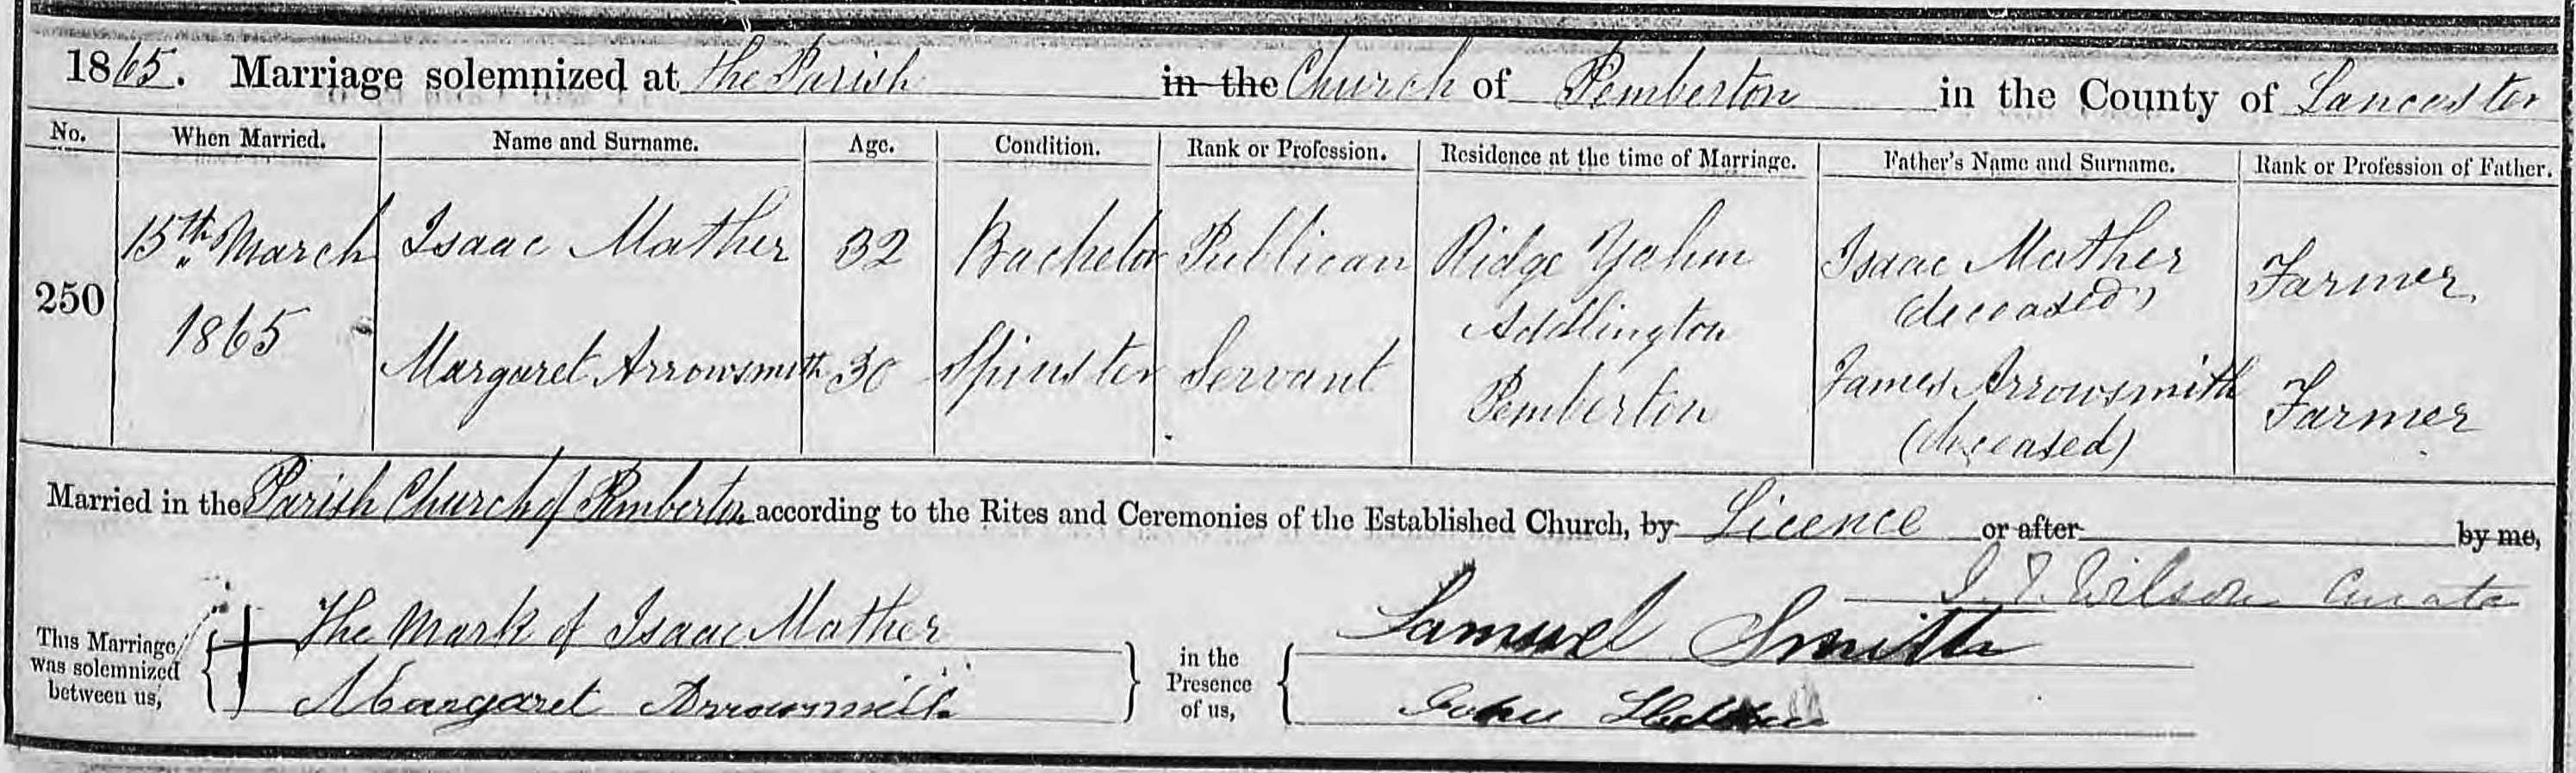 1865. Marriage solemnized at the Parish in the Church of Pemberton in the County of Lancaster
No. When Married. Name and Surname. Age. Condition. Rank or Profession. Residence at the time of Marriage. Father's Name and Surname. Rank or Profession of Father.
250 15th March 1865 Isaac Mather 32 Bachelor Publican Ridge Addlington Isaac Mather (deceased) Farmer
Margaret Arrowsmith 30 Spinster Servant Pemberton James Arrowsmith (deceased) Farmer
Married in the Parish Church of Pemberton according to the Rites and Ceremonies of the Established Church, by Licence or after by me,
Wilson Curate
This Marriage was solemnized between us, The Mark of Isaac Mather in the Presence of us, Samuel Smith
Margaret Arrowsmith John